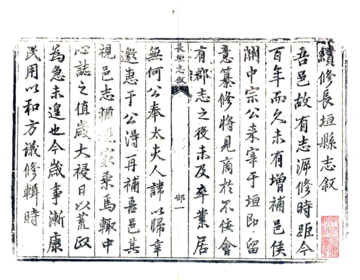 續修長垣縣志叙
吾邑故有志源修時距今
百年而久未有增補邑侯
關中宗公来宰于垣即留
意纂修将見商於不佞會
有郡志之後未及卒業居
長垣志叙
無何公奉太夫人諱以歸幸
邀惠于公得再補吾邑其
視邑志猶 乘馬輙中
心誌之值歲大祲日以荒政
為急未遑也今歲事漸康
民用以和方議修輯時